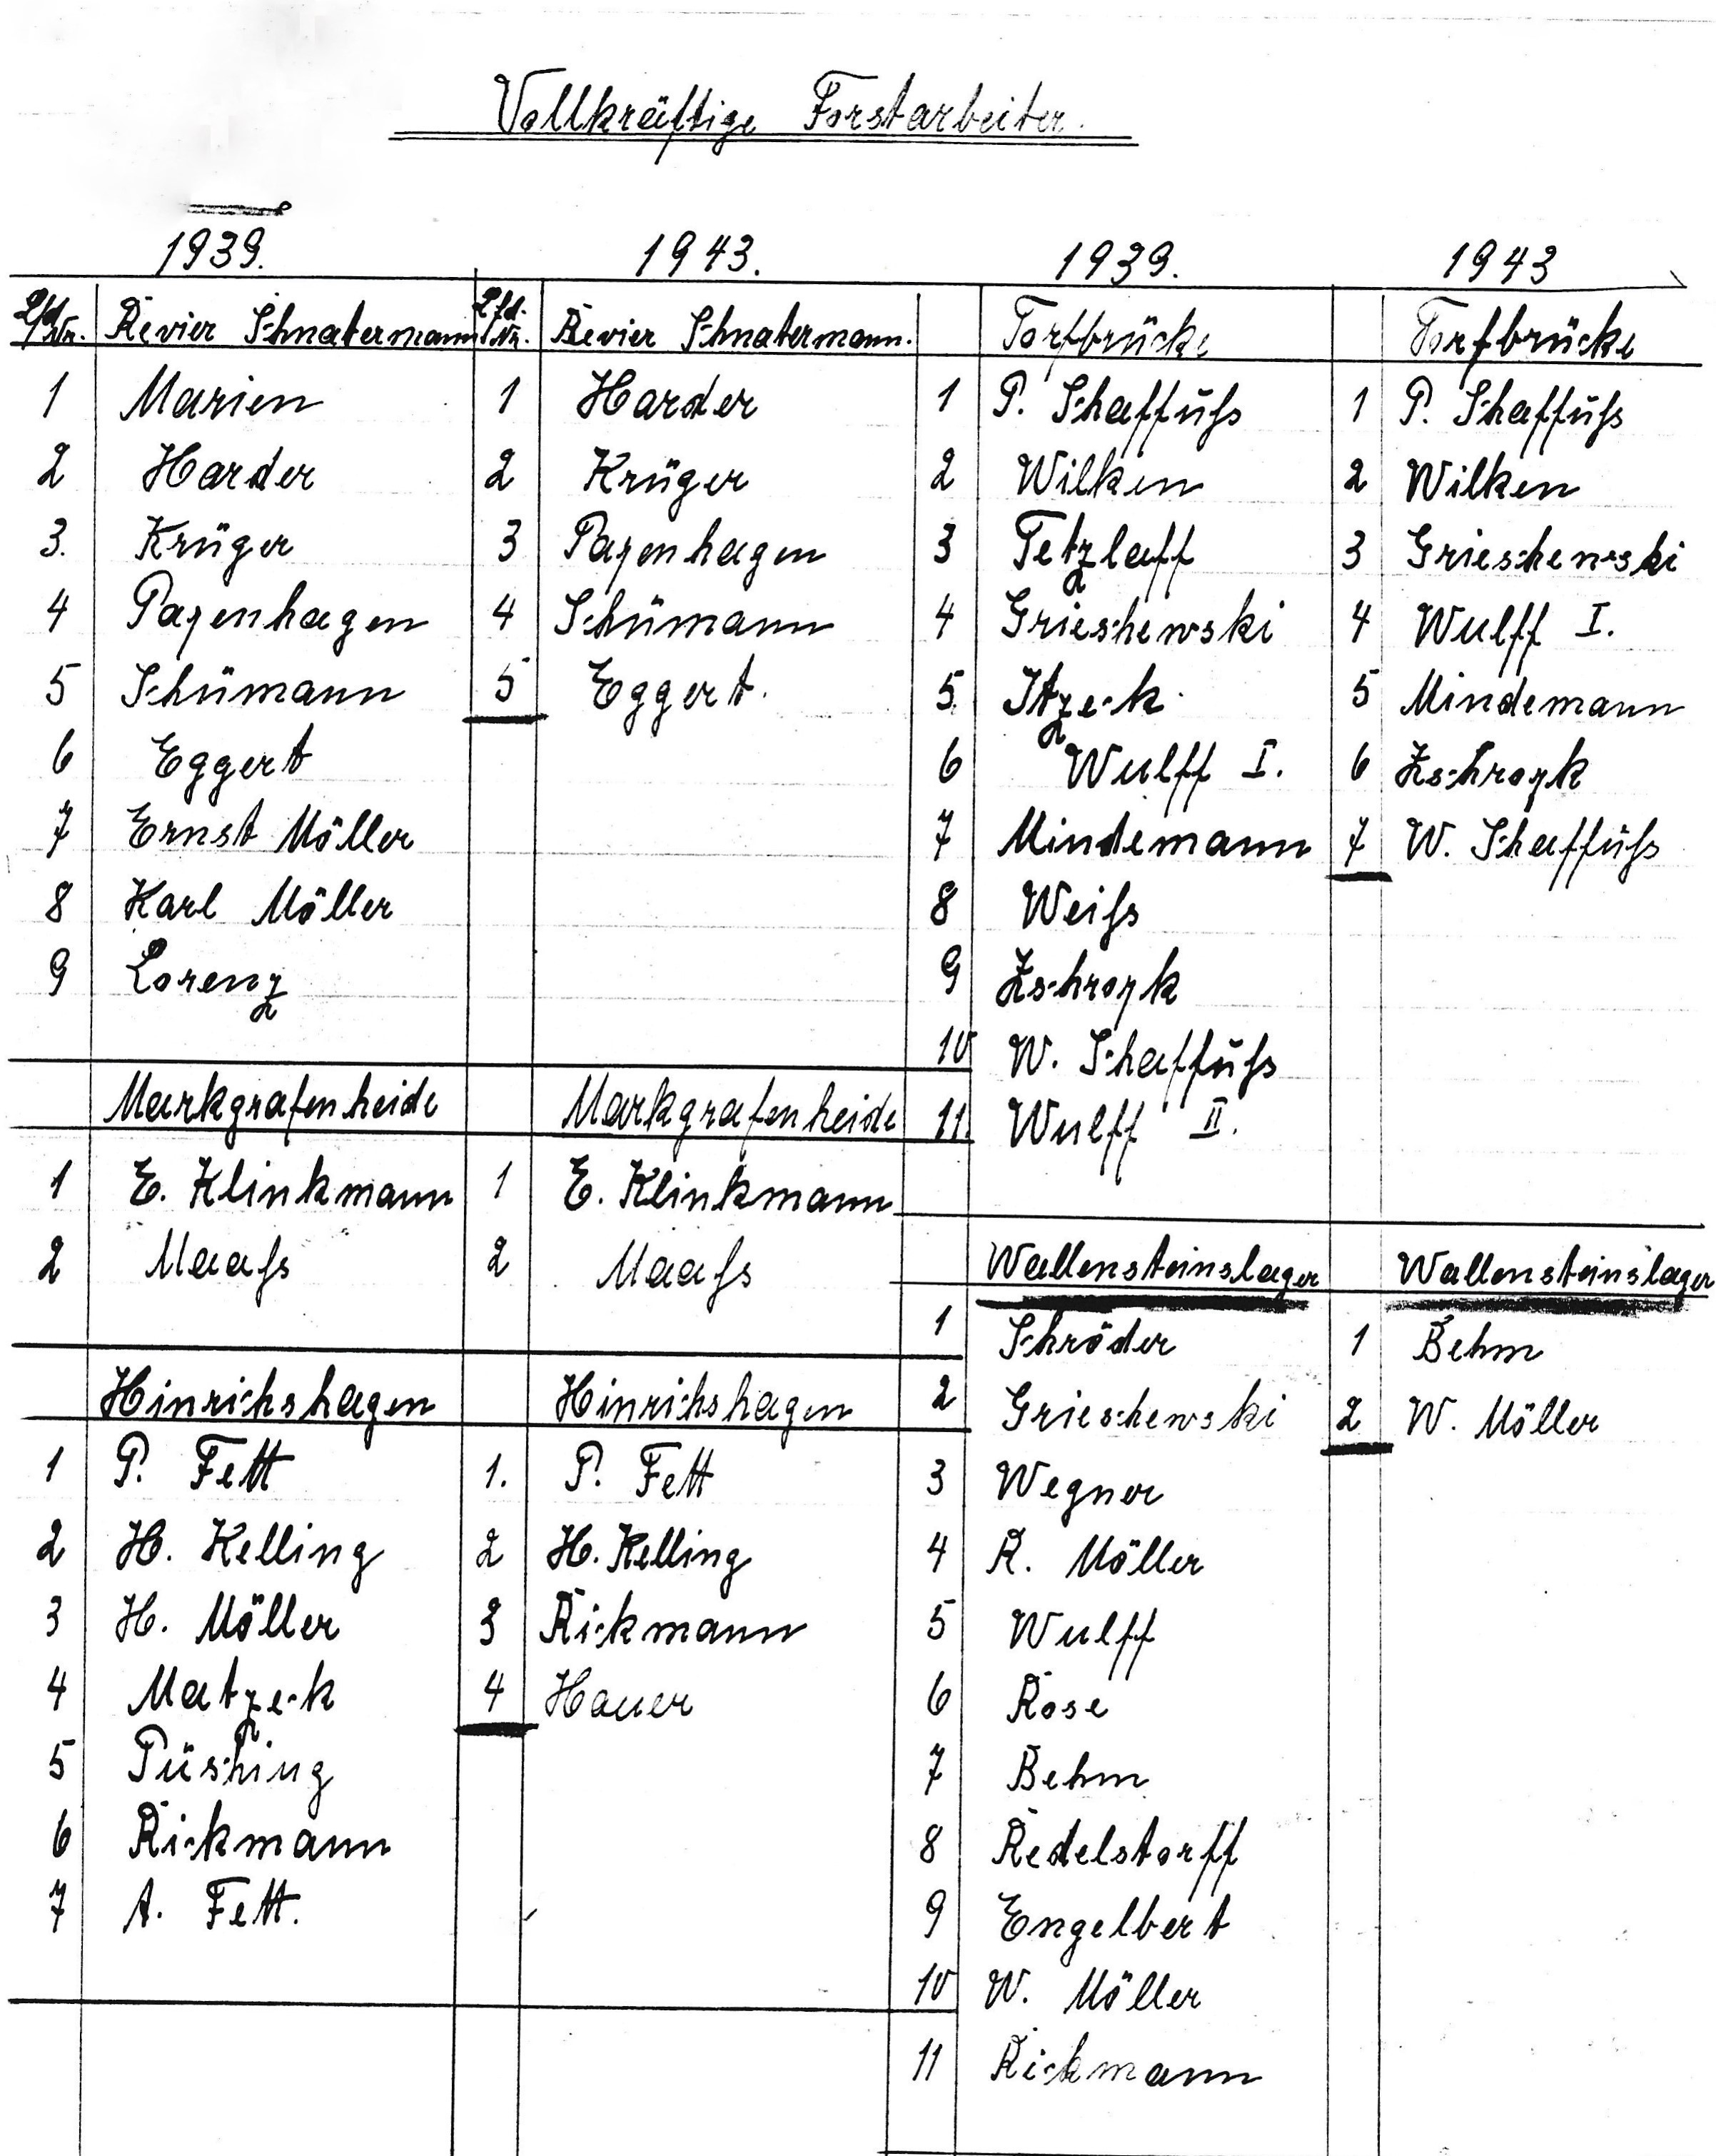 Vollkräftige Forstarbeiter.
1939. 1943. 1939. 1943
Lfd. Nr. Revier Schnatermann Lfd. Nr. Revier Schnatermann. Torfbrücke Torfbrücke
1 Marien 1 Harder 1 P. Schaffuß 1 P. Schaffuß
2 Harder 2 Krüger 2 Wilken 2 Wilken
3. Krüger 3 Papenhagen 3 Tetzlaff 3 Grieschewski
4 Papenhagen 4 Schümann 4 Grieschewski 4 Wulff I.
5 Schümann 5 Eggert. 5. Itzeck 5 Mindemann
6 Eggert 6 Wulff I. 6 Zschropk
7 Ernst Möller 7 Mindemann 7 W. Schaffuß
8 Karl Möller 8 Weiß
9 Lorenz 9 Zschropk
10 W. Schaffuß
Markgrafenheide Markgrafenheide 11. Wulff II.
1 E. Klinkmann 1 E. Klinkmann
2 Maaß 2 Maaß Wallensteinslager Wallensteinslager
1 Schröder 1 Behm
Hinrichshagen Hinrichshagen 2 Grieschewski 2 W. Möller
1 P. Fett 1. P. Fett 3 Wegner
2 H. Kelling 2 H. Kelling 4 R. Möller
3 H. Möller 3 Rickmann 5 Wulff
4 Matzeck 4 Hauer 6 Rose
5 Püsching 7 Behm
6 Rickmann 8 Redelstorff
7 A. Fett. 9 Engelbert
10 W. Möller
11 Rickmann